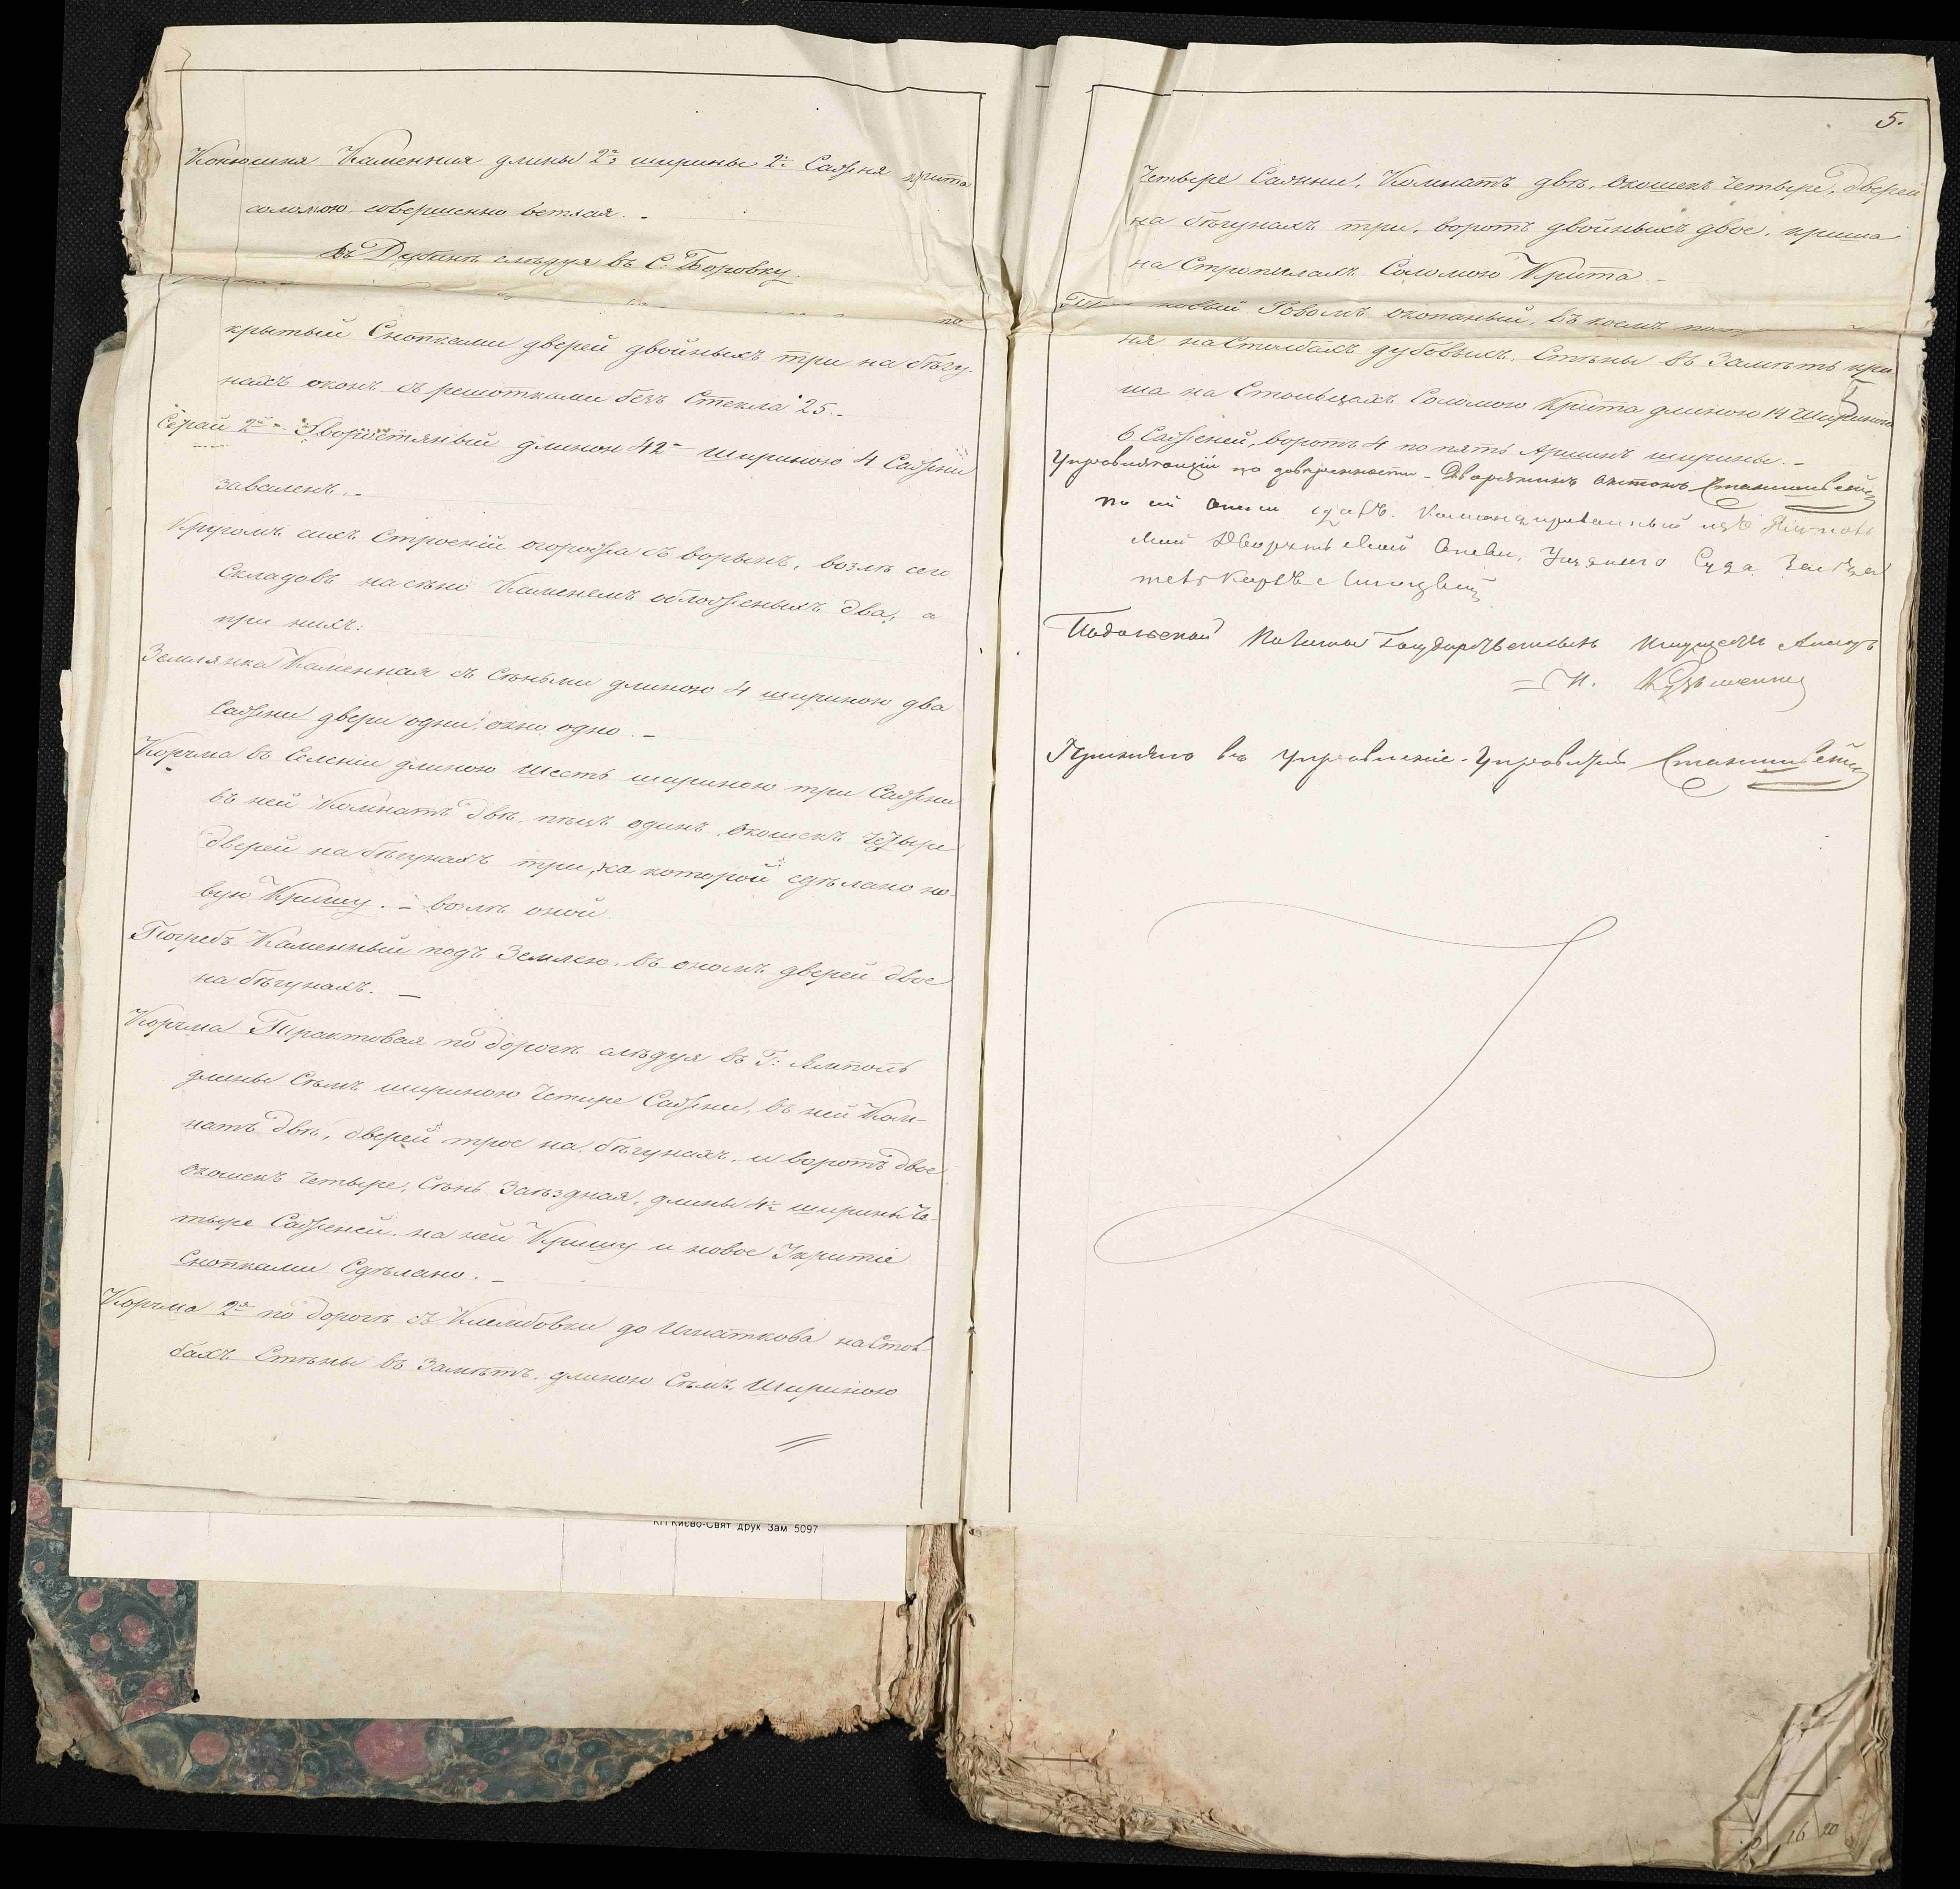 Конюшня Каменная длины 2ъ ширины 2ъ Саженя крита
соломою, совершенно ветхая. –
въ Дубинѣ слѣдуя въ С. Боровку.
по
крытый Снопками дверей двойныхъ три на бѣгу-
нахъ оконъ съ решотками безъ Стекла 25. –
Сарай 2й Хворостяный длиною 42 – Шириною 4 Сажени
заваленъ. –
Кругомъ сихъ Строеній огорожа съ ворынъ, возлѣ сего
Складовъ на сѣно Каменемъ обложеныхъ два, а
при нихъ:
Землянка Каменная съ Сѣньми длиною 4 шириною два
Сажени двери одни, окно одно. –
Корчма въ Селеніи длиною Шесть шириною три Сажени
въ ней Комнатъ двѣ, пѣцъ одинъ, Окошекъ Четыре
дверей на бѣгунахъ три, на которой сдѣлано но-
вую Кришу. – возлѣ оной
Погребъ Каменный подъ Землею, въ ономъ дверей двое
на бѣгунахъ. –
Корчма Трактовая по дорогѣ слѣдуя въ Г: Ямполь
длины Сѣмъ шириною Четире Сажени, въ ней Ком-
натъ двѣ, дверей трое на бѣгунахъ, и воротъ двое
окошекъ Четыре, Сѣнь Заѣздная, длины 4ъ ширины Че-
тыре Саженей. на ней Кришу и новое Укритіе
Снопками Сдѣлано. –
Корчма 2я по дорогѣ съ Клембовки до Игнаткова на Стов-
бахъ Стѣны въ Замѣтъ, длиною Сѣмъ, Шириною
КП Києво-Свят друк Зам 5097
5.
Четыре Сажни, Комнатъ двѣ, Окошекъ Четыре, дверей
на бѣгунахъ три, воротъ двойныхъ двое, криша
на Стропилахъ Соломою Крита –
Ровомъ окопаный, въ коемъ
ня на Столбахъ дубовыхъ, Стѣны въ Замѣтъ кри
ша на Стоньцахъ Соломою Крита длиною 14 Шириною
6 Саженей, воротъ 4 по пять Аршинъ ширины. –
Управляющій по довѣренности – Дворянинъ Антонъ
по сей описи сдалъ. Командированный изъ
Дворянской Опеки, Уѣзднаго Суда
Подольской Палаты Государственныхъ Имуществъ
Принялъ въ Управленіе –
16 20